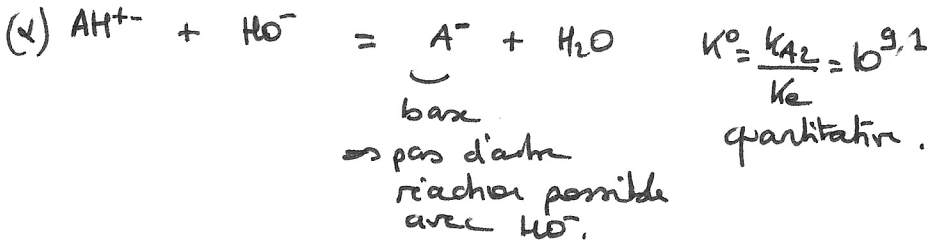 (α) AH⁺⁻ + HO⁻ = A⁻ + H₂O K° = K_A2/Ke = 10^9,1
base
quantitative.
⇒ pas d'autre
réaction possible
avec HO⁻.